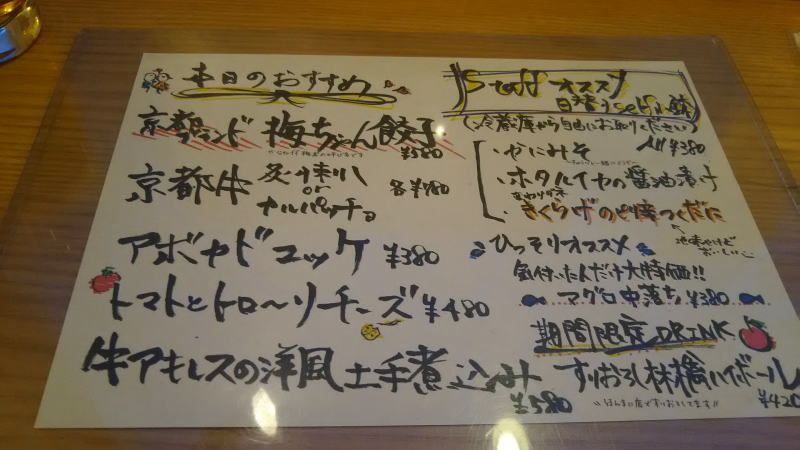 本日のおすすめ
京都ランド 梅ちゃん餃子
¥380
京都牛 炙り刺し
or
カルパッチョ
各¥780
アボカドユッケ ¥380
トマトとトロ〜リチーズ ¥480
牛アキレスの洋風土手煮込み
¥580
Staffオススメ
日替りself小鉢
(冷蔵庫から自由にお取りください)
All ¥380
・かにみそ
・ホタルイカの醤油漬け
・きくらげのピリ辛つくだに
地味やけど
おいしい
ひっそりオススメ
気付いた人だけ大特価!!
マグロ中落ち ¥380
期間限定DRINK
すりおろし林檎ハイボール
¥420
ほんまに店ですりおろしてます!!